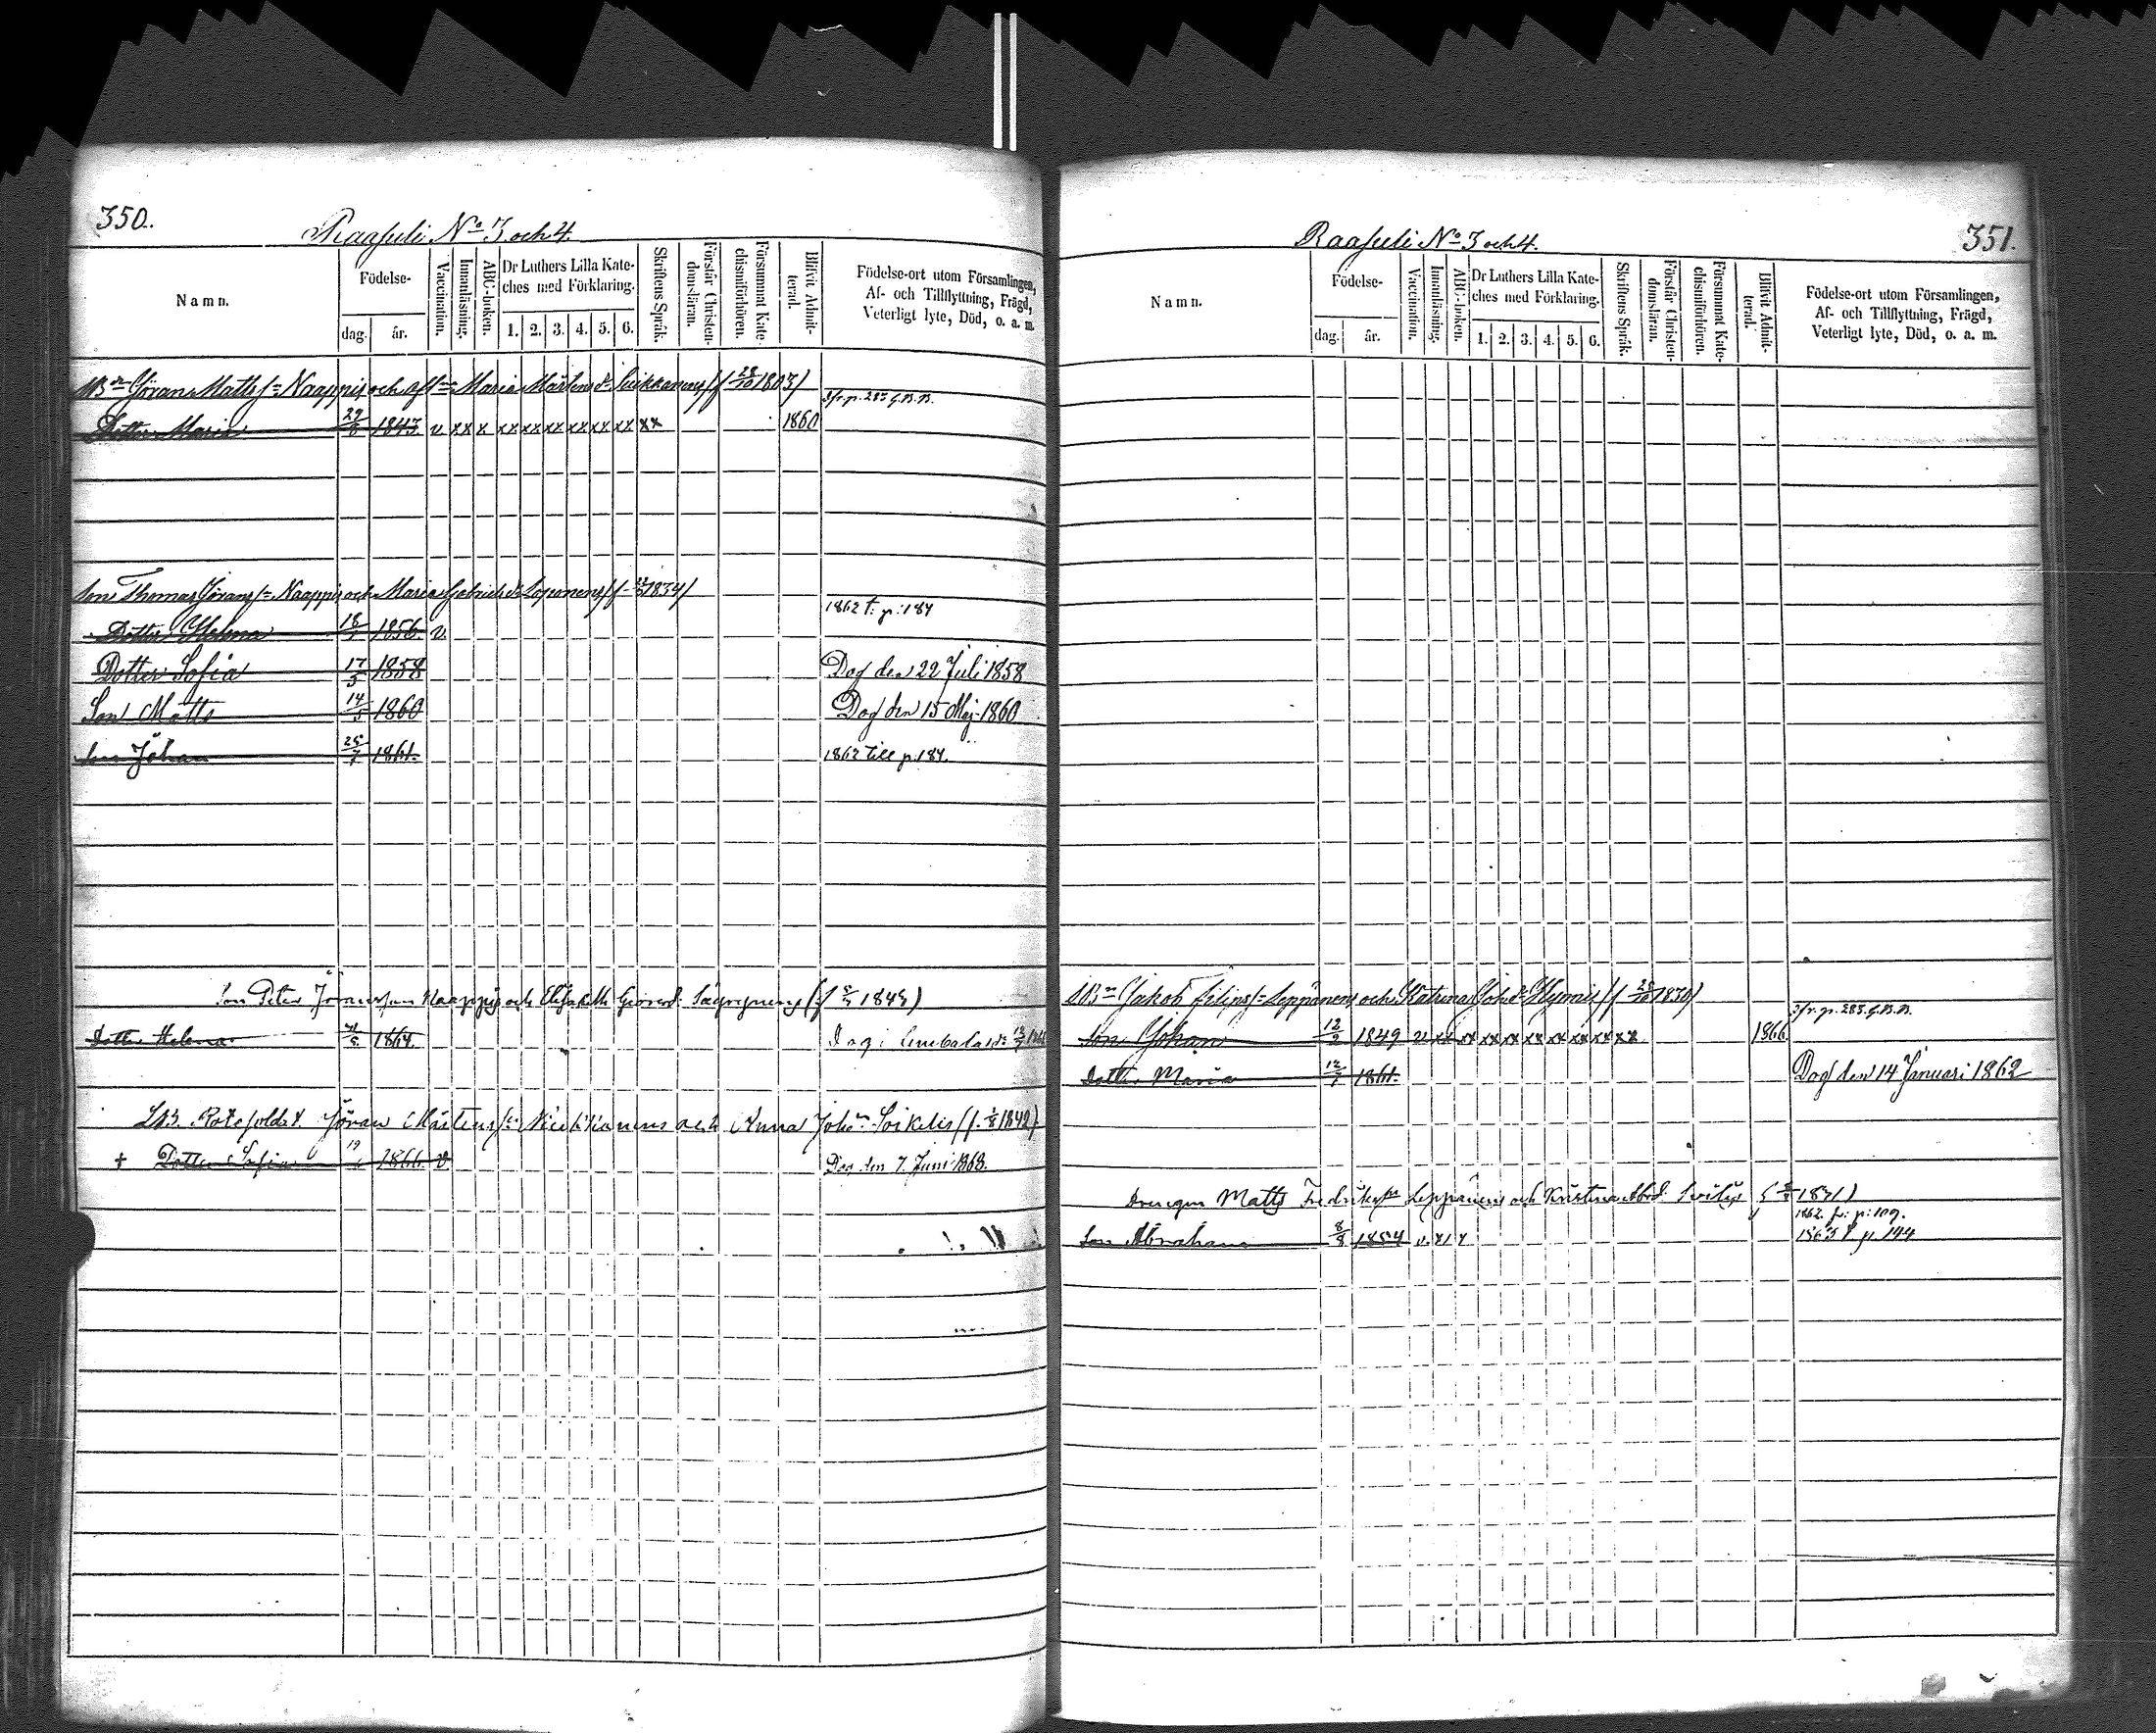 350.
Raasuli No 3 och 4.
Namn.
Födelse-
dag. år.
Vaccination.
Innanläsning.
ABC-boken.
Dr Luthers Lilla Kate-
ches med Förklaring.
1. 2. 3. 4. 5. 6.
Skriftens Språk.
Förstår Christen-
domsläran.
Försummat Kate-
chismiförhören.
Blifvit Admit-
terad.
Födelse-ort utom Församlingen,
Af- och Tillflyttning, Frägd,
Veterligt lyte, Död, o. a. m.
Göran Matts Naappis och Maria Mårtens d. (f. 28/10 1803)
Dotter Maria 29/8 1843 v xx x xx xx xx xx xx xx xx 1860
Son Thomas Görans Naappis och Maria Gabriels d. Loponens 1834)
Dotter Helena 18/1 1856 v. 1862 t. p. 184
Dotter Sofia 17/5 1858 Dog den 22 Juli 1858
Son Matts 14/5 1860 Dog den 15 Maj 1860
Son Johan 25/7 1861. 1862 till p. 184.
Son Peter Göransson Naappis och Elisabeth (f. 1843)
Dotter Helena 1864. Dog i Lembala
Göran Mårtens och Anna Joh. Soikelis (f. 1842)
+ Dotter Sofia 1866 v Dog den 7. Juni 1868.
Raasuli No 3 och 4.
351.
Namn.
Födelse-
dag. år.
Vaccination.
Innanläsning.
ABC-boken.
Dr Luthers Lilla Kate-
ches med Förklaring.
1. 2. 3. 4. 5. 6.
Skriftens Språk.
Förstår Christen-
domsläran.
Försummat Kate-
chismiförhören.
Blifvit Admit-
terad.
Födelse-ort utom Församlingen,
Af- och Tillflyttning, Frägd,
Veterligt lyte, Död, o. a. m.
Jakob Filips Leppänens och Katrina Joh. d. 1830)
Son Johan 12/2 1849 v xx xx xx xx xx xx xx xx xx 1866.
Dotter Maria 12/7 1861. Dog den 14 Januari 1862
Drengen Matts Fredriks Leppänens och Kristina 1831)
1862 fr: p: 109.
Son Abraham 8/8 1854 v. 1863 t p. 144